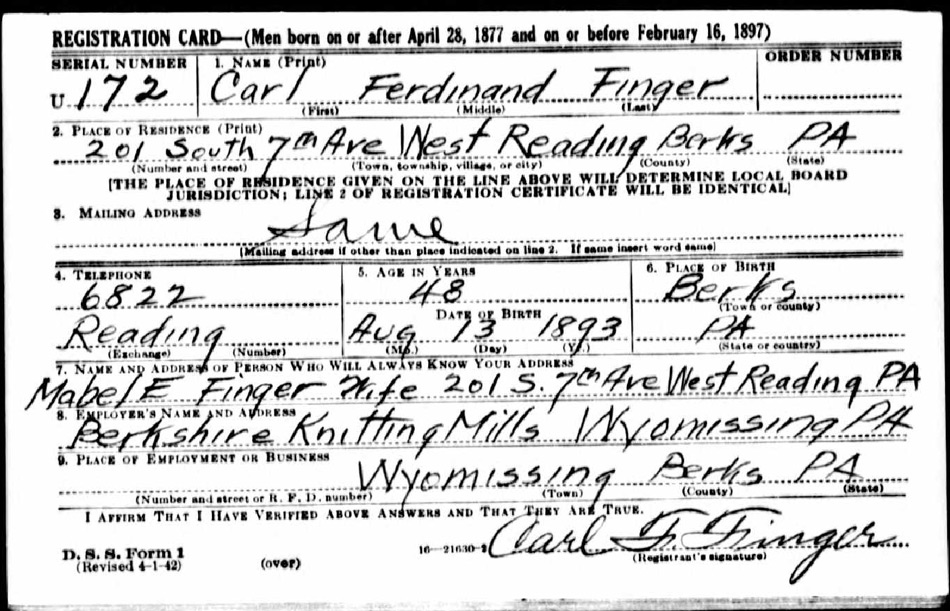 REGISTRATION CARD—(Men born on or after April 28, 1877 and on or before February 16, 1897)
SERIAL NUMBER 1. NAME (Print) ORDER NUMBER
U 172 Carl Ferdinand Finger
(First) (Middle) (Last)
2. PLACE OF RESIDENCE (Print)
201 South 7th Ave West Reading Berks PA
(Number and street) (Town, township, village, or city) (County) (State)
[THE PLACE OF RESIDENCE GIVEN ON THE LINE ABOVE WILL DETERMINE LOCAL BOARD
JURISDICTION; LINE 2 OF REGISTRATION CERTIFICATE WILL BE IDENTICAL]
3. MAILING ADDRESS
Same
[Mailing address if other than place indicated on line 2. If same insert word same]
4. TELEPHONE 5. AGE IN YEARS 6. PLACE OF BIRTH
6822 48 Berks
DATE OF BIRTH (Town or county)
Reading Aug 13 1893 PA
(Exchange) (Number) (Mo.) (Day) (Yr.) (State or country)
7. NAME AND ADDRESS OF PERSON WHO WILL ALWAYS KNOW YOUR ADDRESS
Mabel E Finger Wife 201 S. 7th Ave West Reading PA
8. EMPLOYER'S NAME AND ADDRESS
Berkshire Knitting Mills Wyomissing PA
9. PLACE OF EMPLOYMENT OR BUSINESS
Wyomissing Berks PA
(Number and street or R. F. D. number) (Town) (County) (State)
I AFFIRM THAT I HAVE VERIFIED ABOVE ANSWERS AND THAT THEY ARE TRUE.
D. S. S. Form 1 16—21630-2 Carl F. Finger
(Revised 4-1-42) (over) (Registrant's signature)